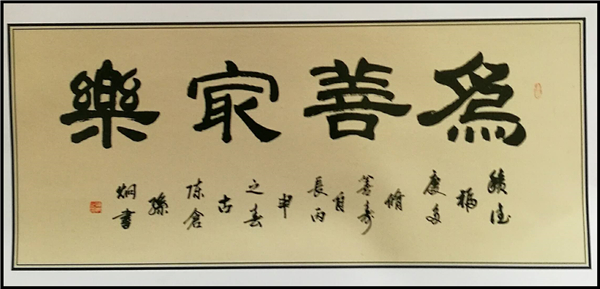 為善㝡樂
積德
福
慶多
脩
善壽
自
長丙
申
之春
古
陈倉
孫
炯書